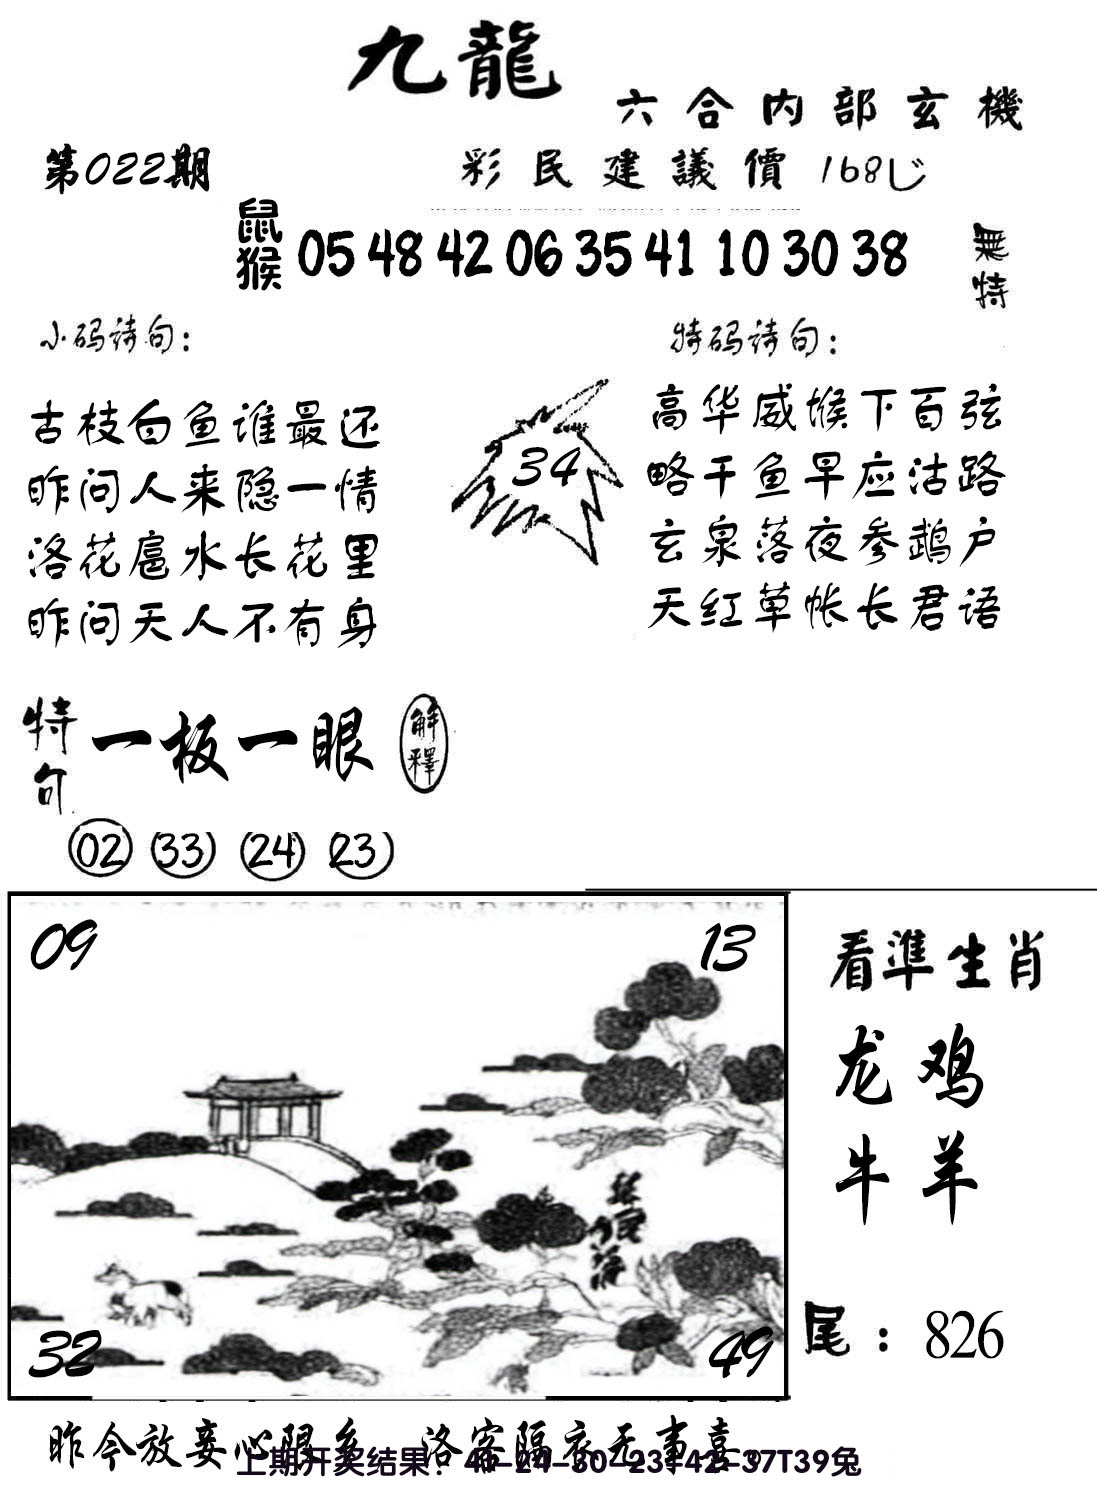 九龍
六合内部玄機
第022期
彩民建議價 168
鼠猴
05 48 42 06 35 41 10 30 38
無特
小码诗句：
特码诗句：
古枝白鱼谁最还
昨问人来隐一情
洛花扈水长花里
昨问天人不有身
34
高华威堠下百弦
略干鱼早应沽路
玄泉落夜参鹉户
天红草帐长君语
特句
一板一眼
解釋
02 33 24 23
09
13
32
49
看準生肖
龙鸡
牛羊
尾：826
昨今放妾心限多 洛客隔衣无事喜
上期开奖结果：
24-30-23-42-37T39兔